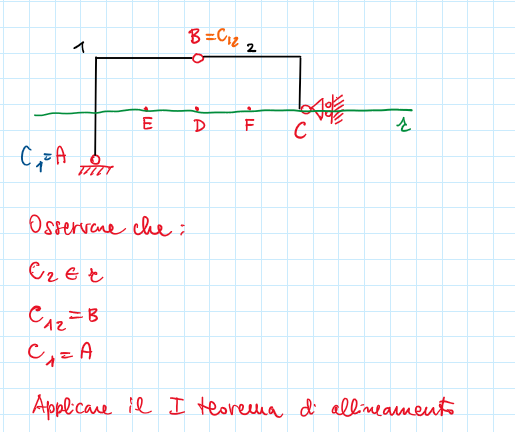 1
B = C12
2
E
D
F
C
r
C1 = A
Osservare che:
C2 ∈ r
C12 = B
C1 = A
Applicare il I teorema di allineamento